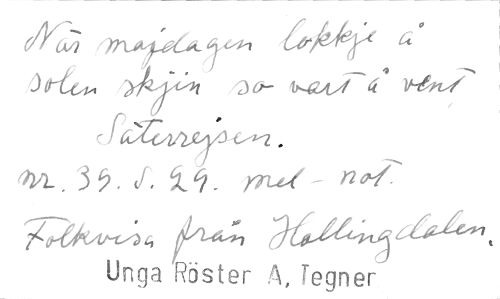 När majdagen lokkje å
solen skjin so vart å vent
Säterrejsen.
nr. 39. S. 29. mel-not.
Folkvisa från Hallingdalen.
Unga Röster A, Tegner